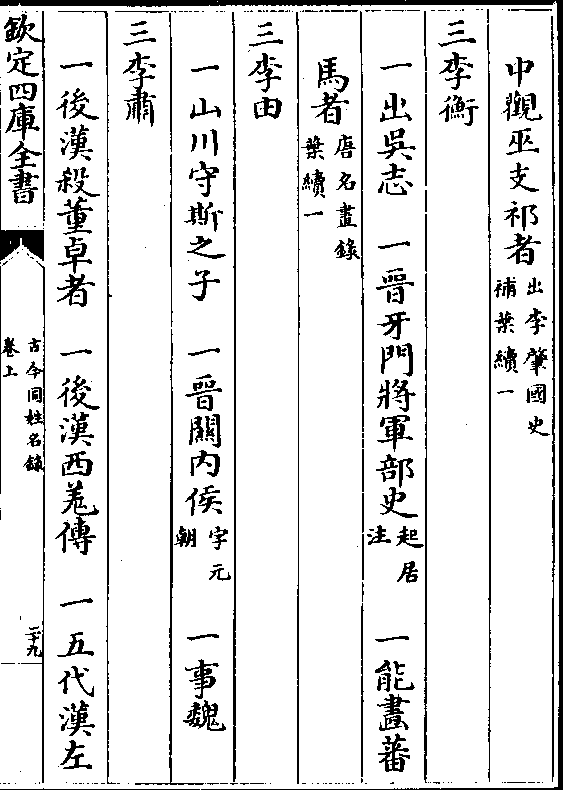 中觀巫支祁者出李肇國史補葉續一
三李衡
一出吳志 一晉牙門將軍部史起居注 一能畫蕃
馬者唐名畫錄葉續一
三李由
一山川守斯之子 一晉關内侯字元朝 一事魏
三李肅
一後漢殺董卓者 一後漢西羗傳 一五代漢左
欽定四庫全書 古今同姓名錄卷上 二十九